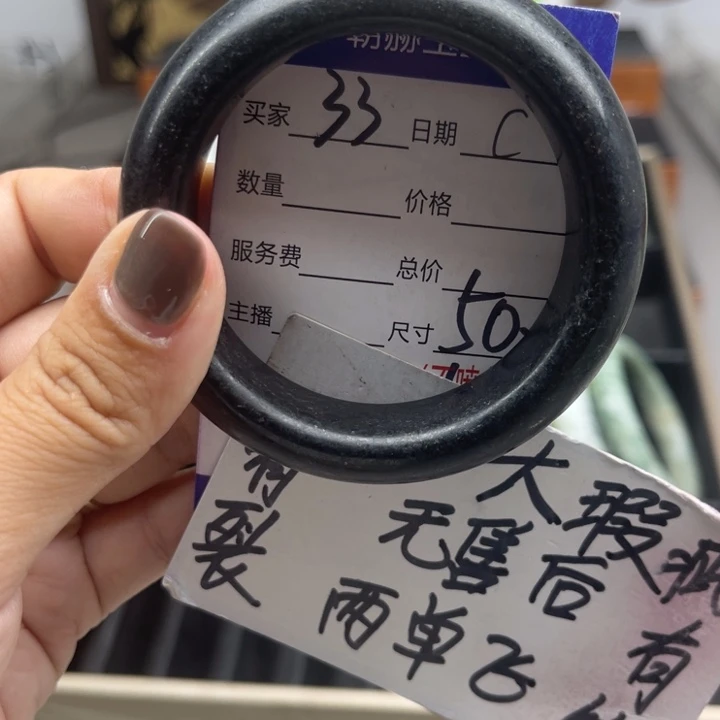 买家 33 日期 C
数量 价格
服务费 总价
主播 尺寸 50
有裂
大瑕疵
无售后
有
两单飞